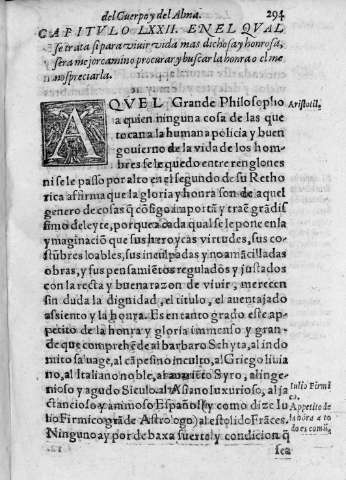 del Cuerpo y del Alma. 294
CAPITVLO LXXII. EN EL QVAL
se trata si para viuir vida mas dichosa y honrosa,
sera mejor camino procurar y buscar la honra o el me
nospreciarla.
AQVEL Grande Philosopho
Aristotil.
a quien ninguna cosa de las que
tocan a la humana policia y buen
gouierno de la vida de los hom
bres se le quedo entre renglones
ni se le passo por alto en el segundo de su Retho
rica affirma que la gloria y honra son de aquel
genero de cosas q̃ cõsigo importã y traẽ grãdis
simo deleyte, porque a cada qual se le pone en la
y maginacion que sus heroycas virtudes, sus cos
tũbres loables, sus inculpadas y no amãcilladas
obras, y sus pensamiẽtos regulados y justados
con la recta y buena razon de viuir, merecen
sin duda la dignidad, el titulo, el auentajado
assiento y la honra. Es en tanto grado este ap-
petito de la honra y gloria immenso y gran-
de que comprehẽde al barbaro Schyta, al indo
mito saluage, al cãpesino inculto, al Griego libia
no, al Italiano noble, al Syro, al inge-
nioso y agudo Siculo, al Asiano luxurioso, al ja
ctancioso y animoso Español (y como dize Iu
lio Firmico grã de Astrologo) al estolido Frãces.
Iulio Firmi
co.
Appetito de
la hõra a to
do es comũ.
Ninguno ay por de baxa suerte y condicion q̃
sea